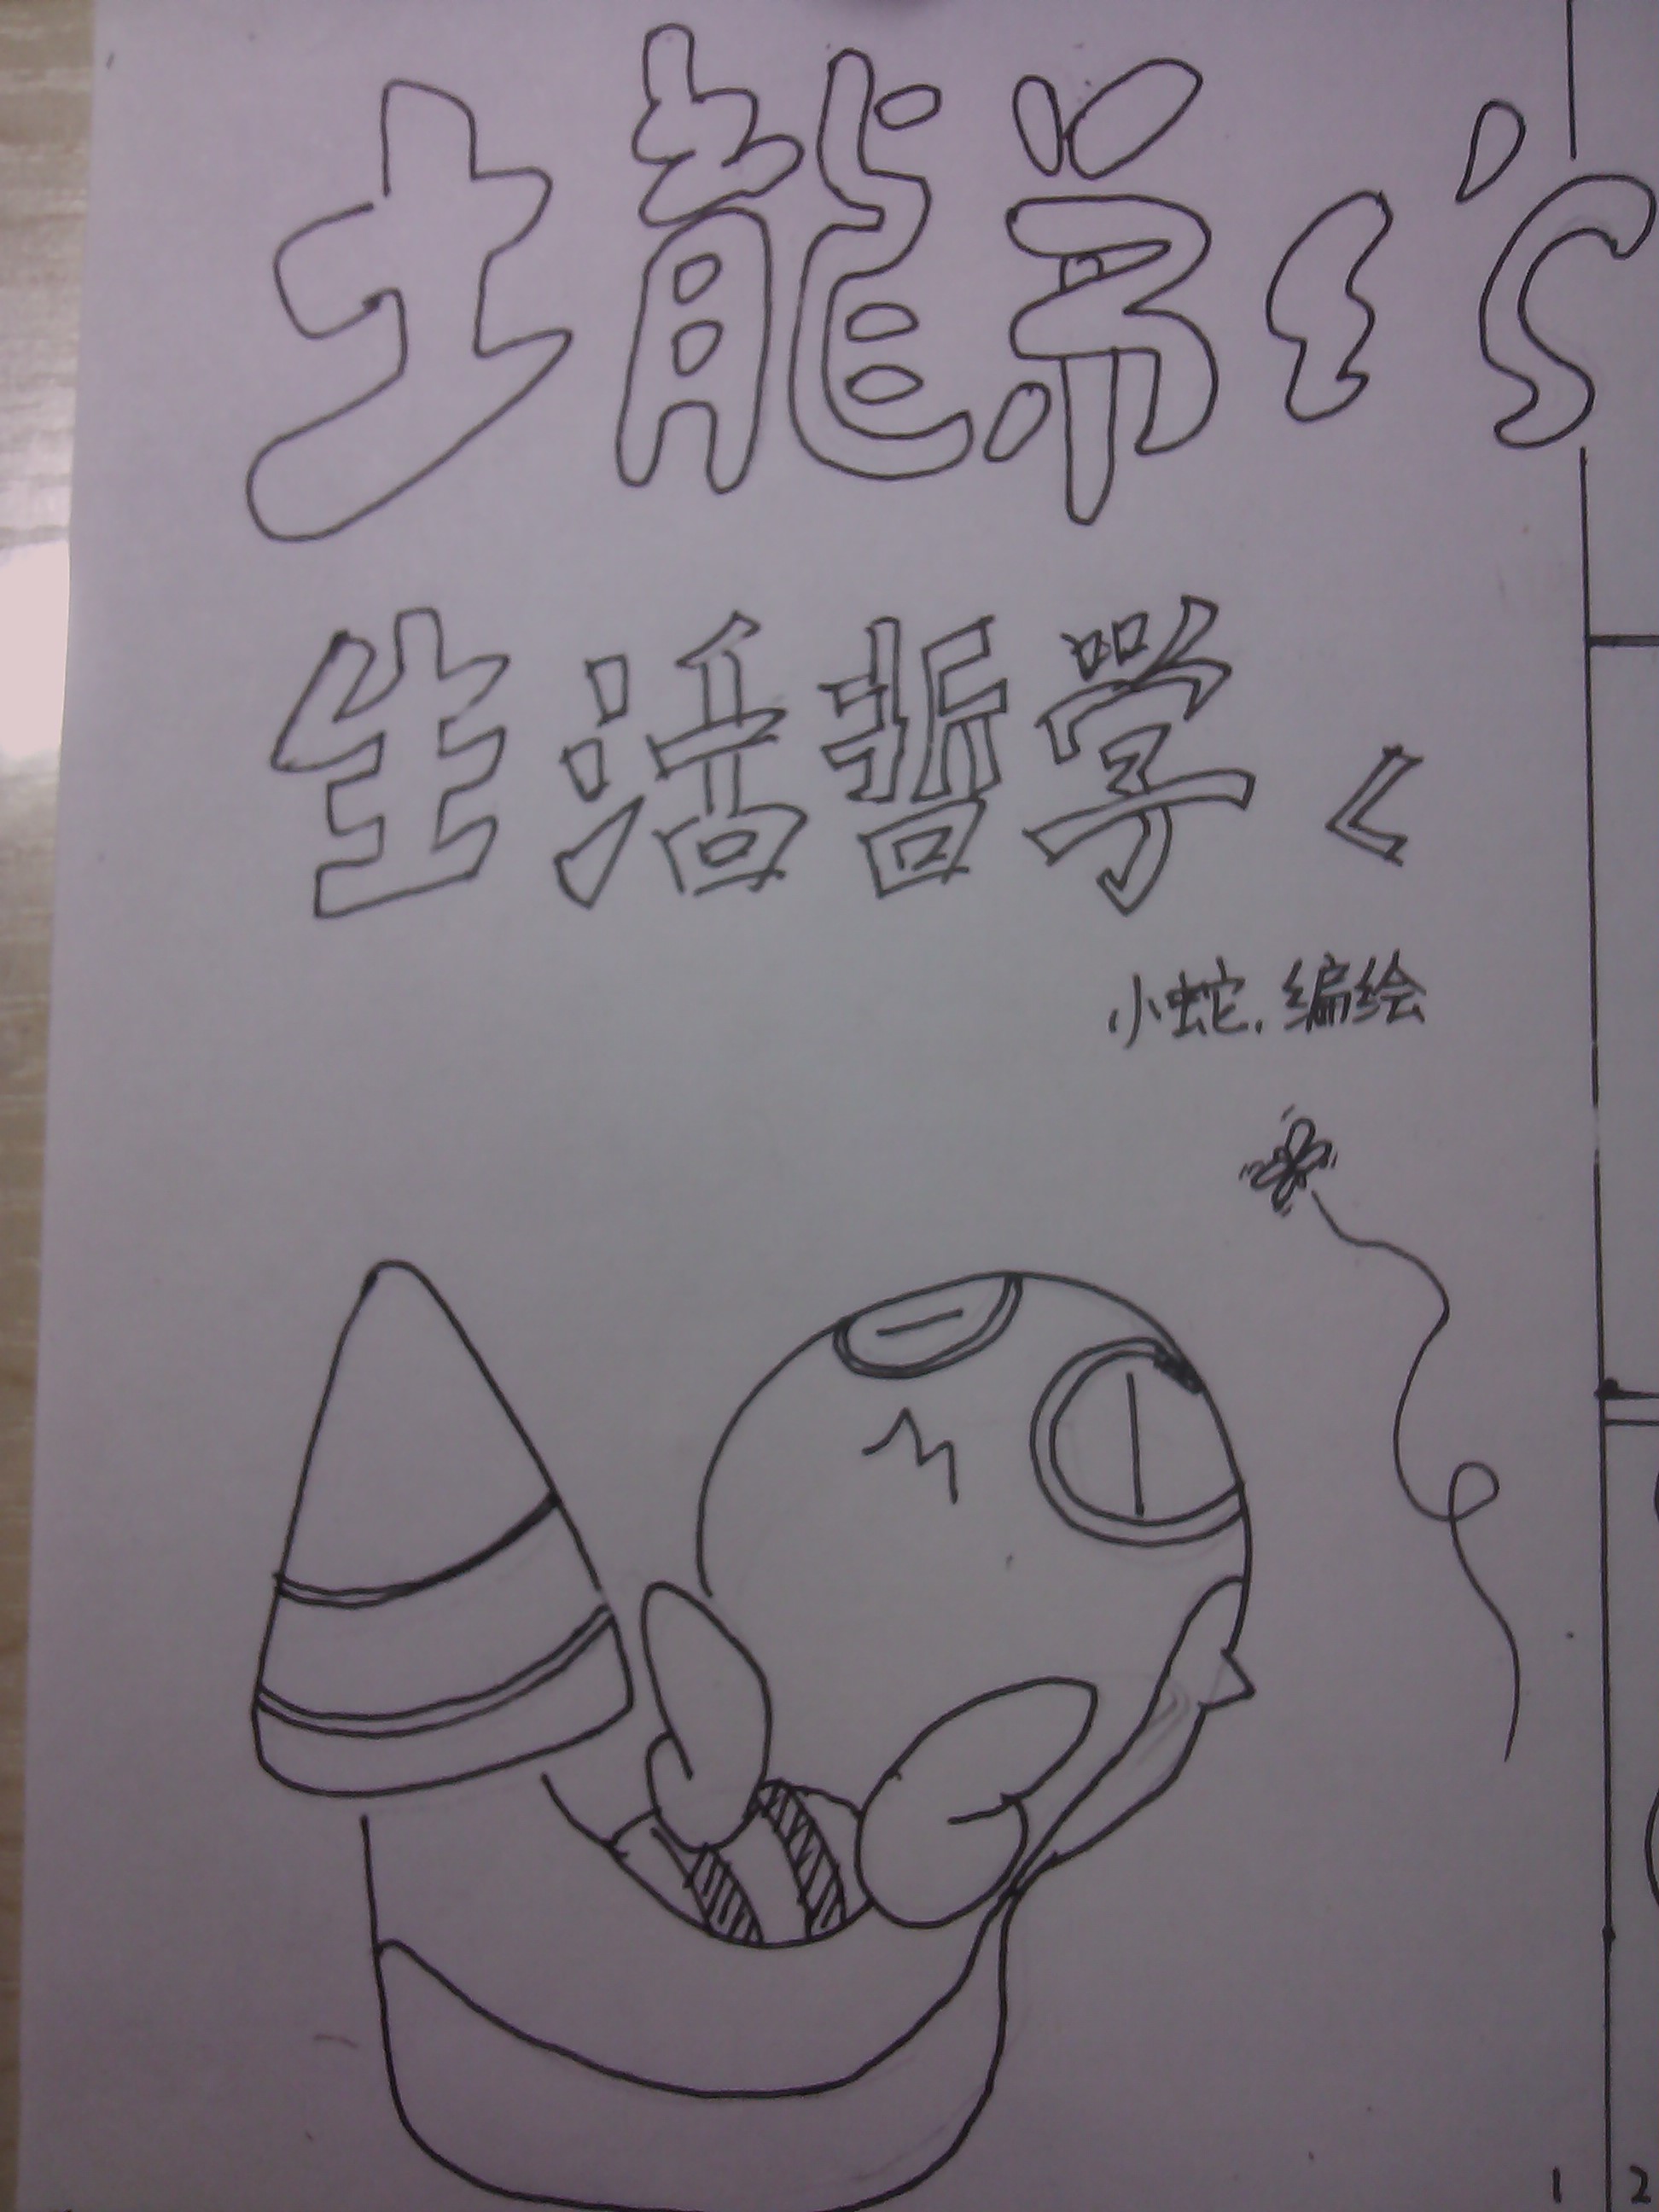 土龍弟's
生活哲学<
小蛇.编绘
1 2